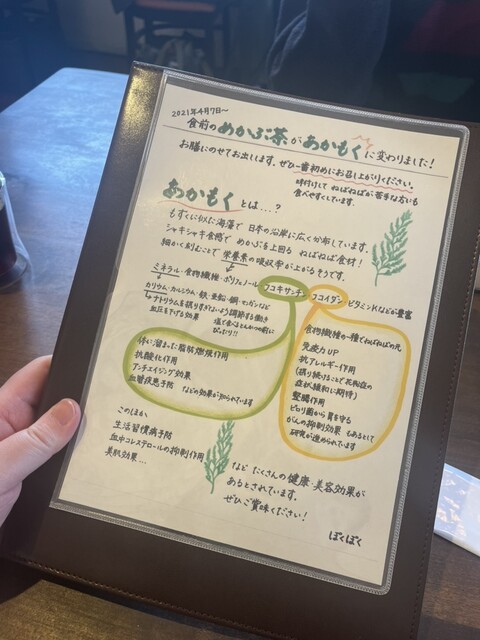 2021年4月7日〜
食前のめかぶ茶があかもくに変わりました！
お膳にのせてお出しします。ぜひ一番初めにお召し上がりください。
味付けして ねばねばが苦手な方も
食べやすくしています。
あかもく とは…？
もずくに似た海藻で 日本の沿岸に広く分布しています。
シャキシャキ食感で めかぶを上回る ねばねば食材！
細かく刻むことで 栄養素の吸収率が上がるそうです。
ミネラル・食物繊維・ポリフェノール フコキサンチン フコイダン・ビタミンKなどが豊富
カリウム・カルシウム・鉄・亜鉛・銅・セガンなど
ナトリウムを摂りすぎないよう調節する働き
血圧を下げる効果
塩で食べるとんかつの前に
ぴったり!!
体に溜まった脂肪燃焼作用
抗酸化作用
アンチエイジング効果
血管疾患予防 などの効果が知られています
食物繊維の一種でねばねばの元
免疫力UP
抗アレルギー作用
(摂り続けることで花粉症の
症状緩和に期待)
整腸作用
ピロリ菌から胃を守る
がんの抑制効果 もあるとして
研究が進められています
このほか
生活習慣病予防
血中コレステロールの抑制作用
美肌効果…
など たくさんの健康・美容効果が
あるとされています。
ぜひご賞味ください！
ぼくぼく